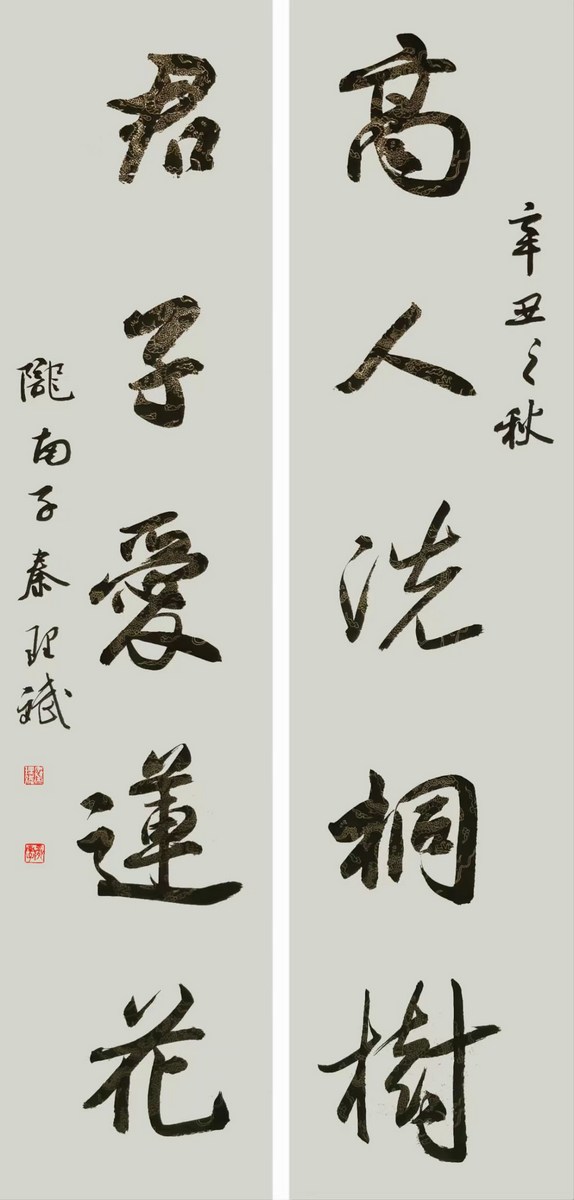 辛丑之秋
高人洗桐樹
君子愛蓮花
隴南子秦理斌